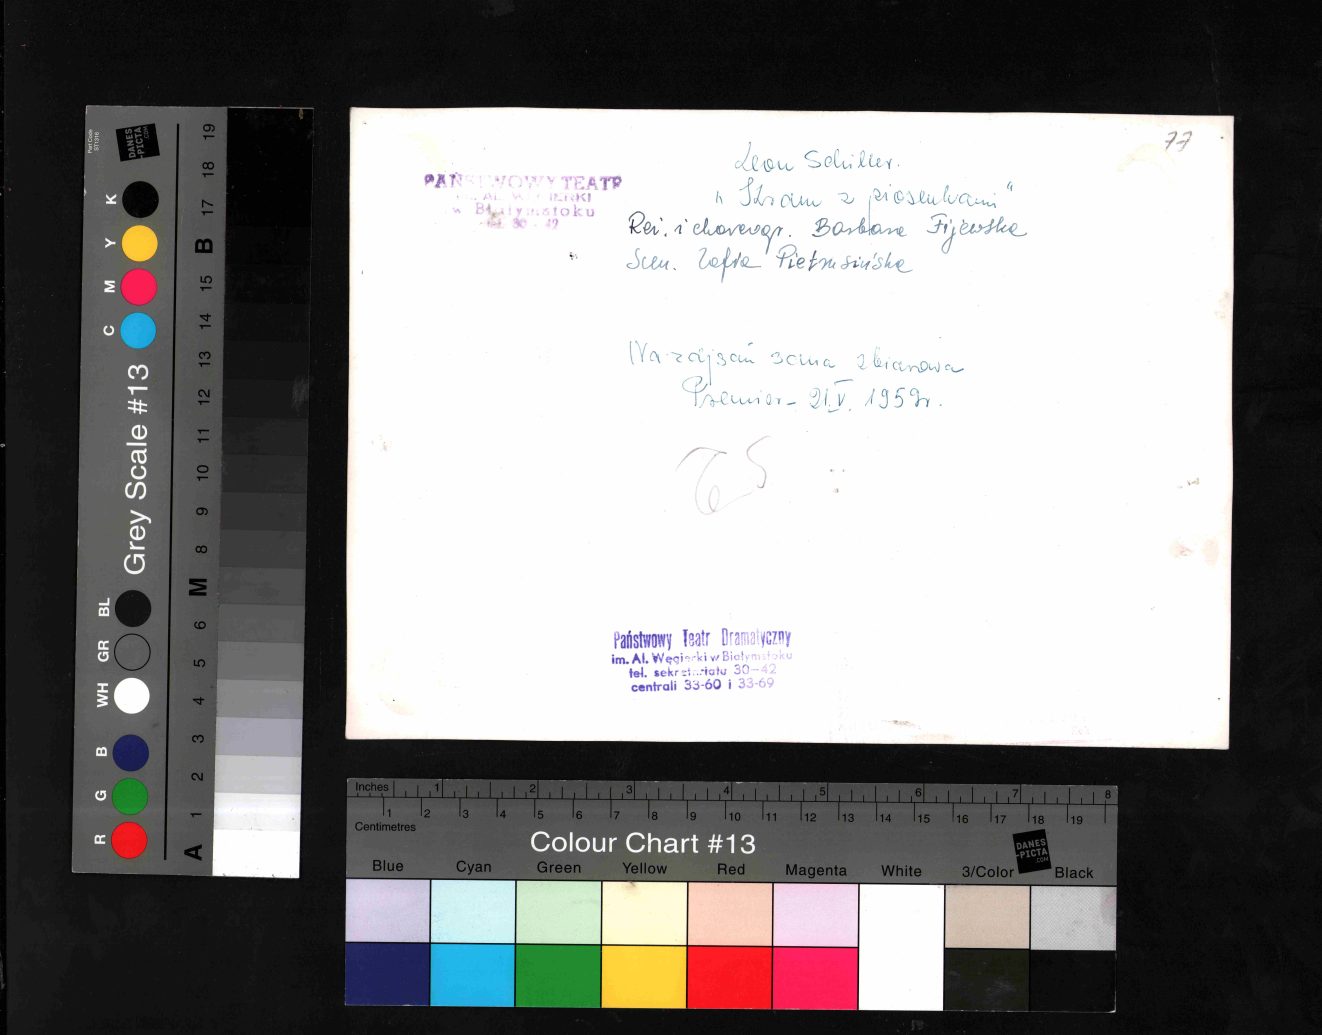 77
Leon Schiller.
„Kram z piosenkami"
Reż. i choreogr. Barbara Fijewska
Scen. Zofia Pietrusińska
PAŃSTWOWY TEATR
IM. AL. WĘGIERKI
w Białymstoku
tel. 30-42
Na zdjęciu scena zbiorowa
Premier- 21.V. 1959r.
Państwowy Teatr Dramatyczny
im. Al. Węgierki w Białymstoku
tel. sekretariatu 30-42
centrali 33-60 i 33-69
DANES
-PICTA
.COM
Grey Scale #13
K Y M C
BL GR WH B G R
19 18 17 B 15 14 13 12 11 10 9 8 M 6 5 4 3 2 1 A
Inches 1 2 3 4 5 6 7 8
1 2 3 4 5 6 7 8 9 10 11 12 13 14 15 16 17 18 19
Centimetres
Colour Chart #13
DANES
-PICTA
.COM
Blue Cyan Green Yellow Red Magenta White 3/Color Black